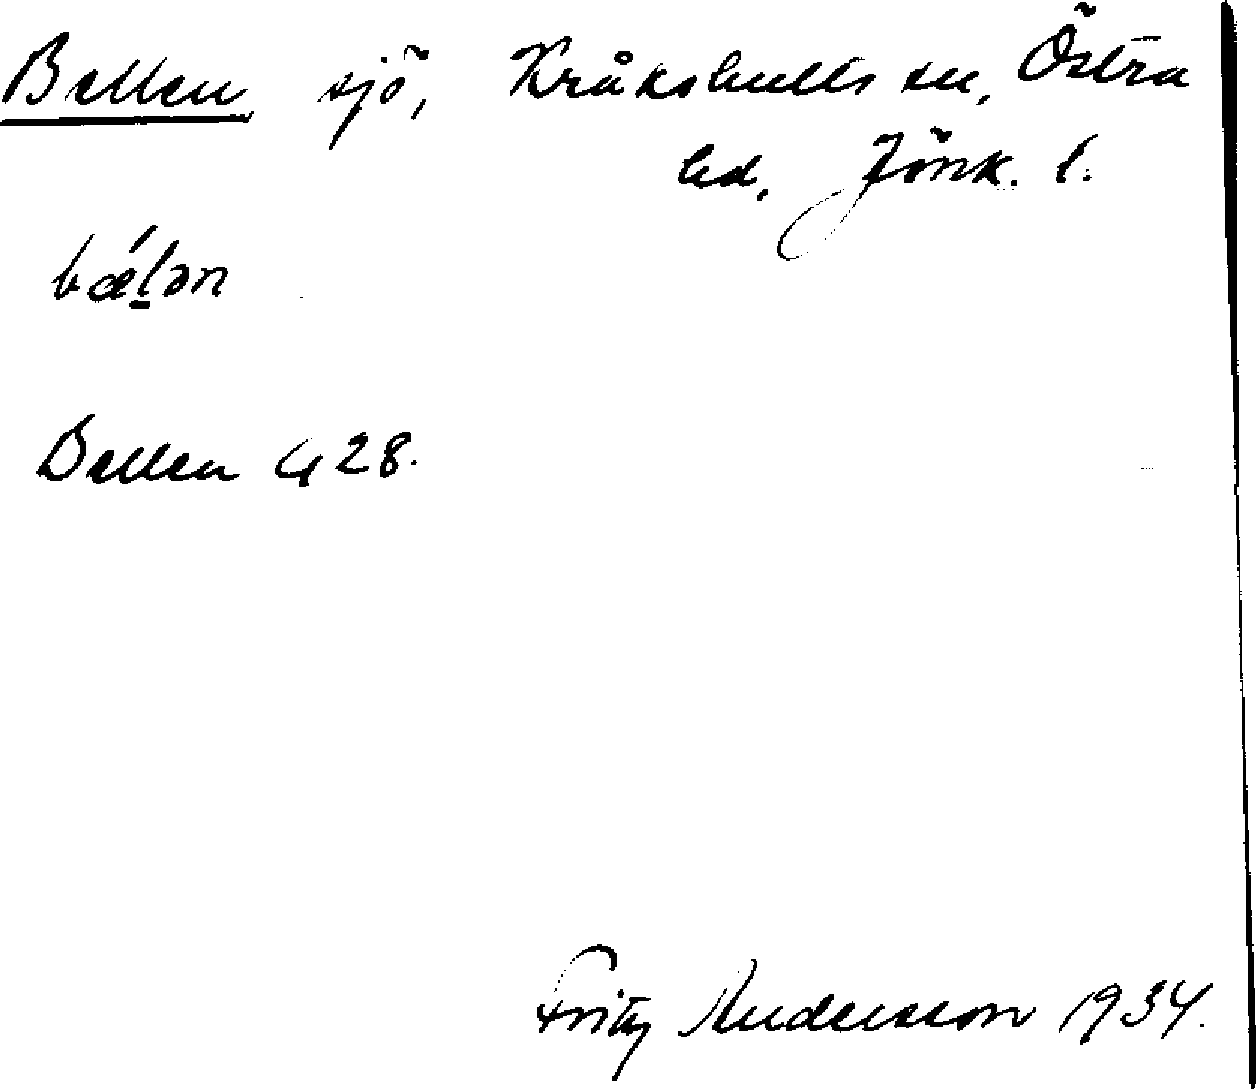 Bellen sjö, Kråkshults sn, Östra
hd, Jönk. l.
bǽl̠ən
Bellen G 28.
Fritz Andersson 1934.